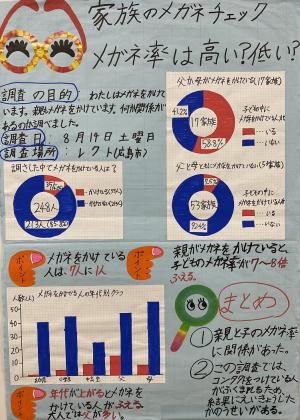 家族のメガネチェック
メガネ率は高い?低い?
調査の目的 わたしはメガネをかけて
います。親もメガネをかけています。何か関係が
あるのか調べました。
調査日: 8月19日土曜日
調査場所:レクト(広島市)
父か母がメガネをかけている(17家族)
41.2%
17家族
58.8%
子どもの中に
メガネをかけている人が
・・・いる
・・・いない
調さした中でメガネをかけている人は?
248人
父と母ともにメガネをかけていない(53家族)
53家族
子どもの中に
メガネをかけている人が
・・・いる
・・・いない
ポイント
メガネをかけている
人は、7人に1人
ポイント
親がメガネをかけていると、
子どものメガネ率が7~8倍
ふえる。
人数(人) メガネをかけてる人の年代別グラフ
50
40
30
20
10
0
父
母
まとめ
①親と子のメガネ率
に関係があった。
②この調査では、
コンタクトをつけている人
がふくまれるため、
結果にえいきょうした
かのうせいがある。
ポイント
年代が上がるとメガネを
かけている人がふえる。